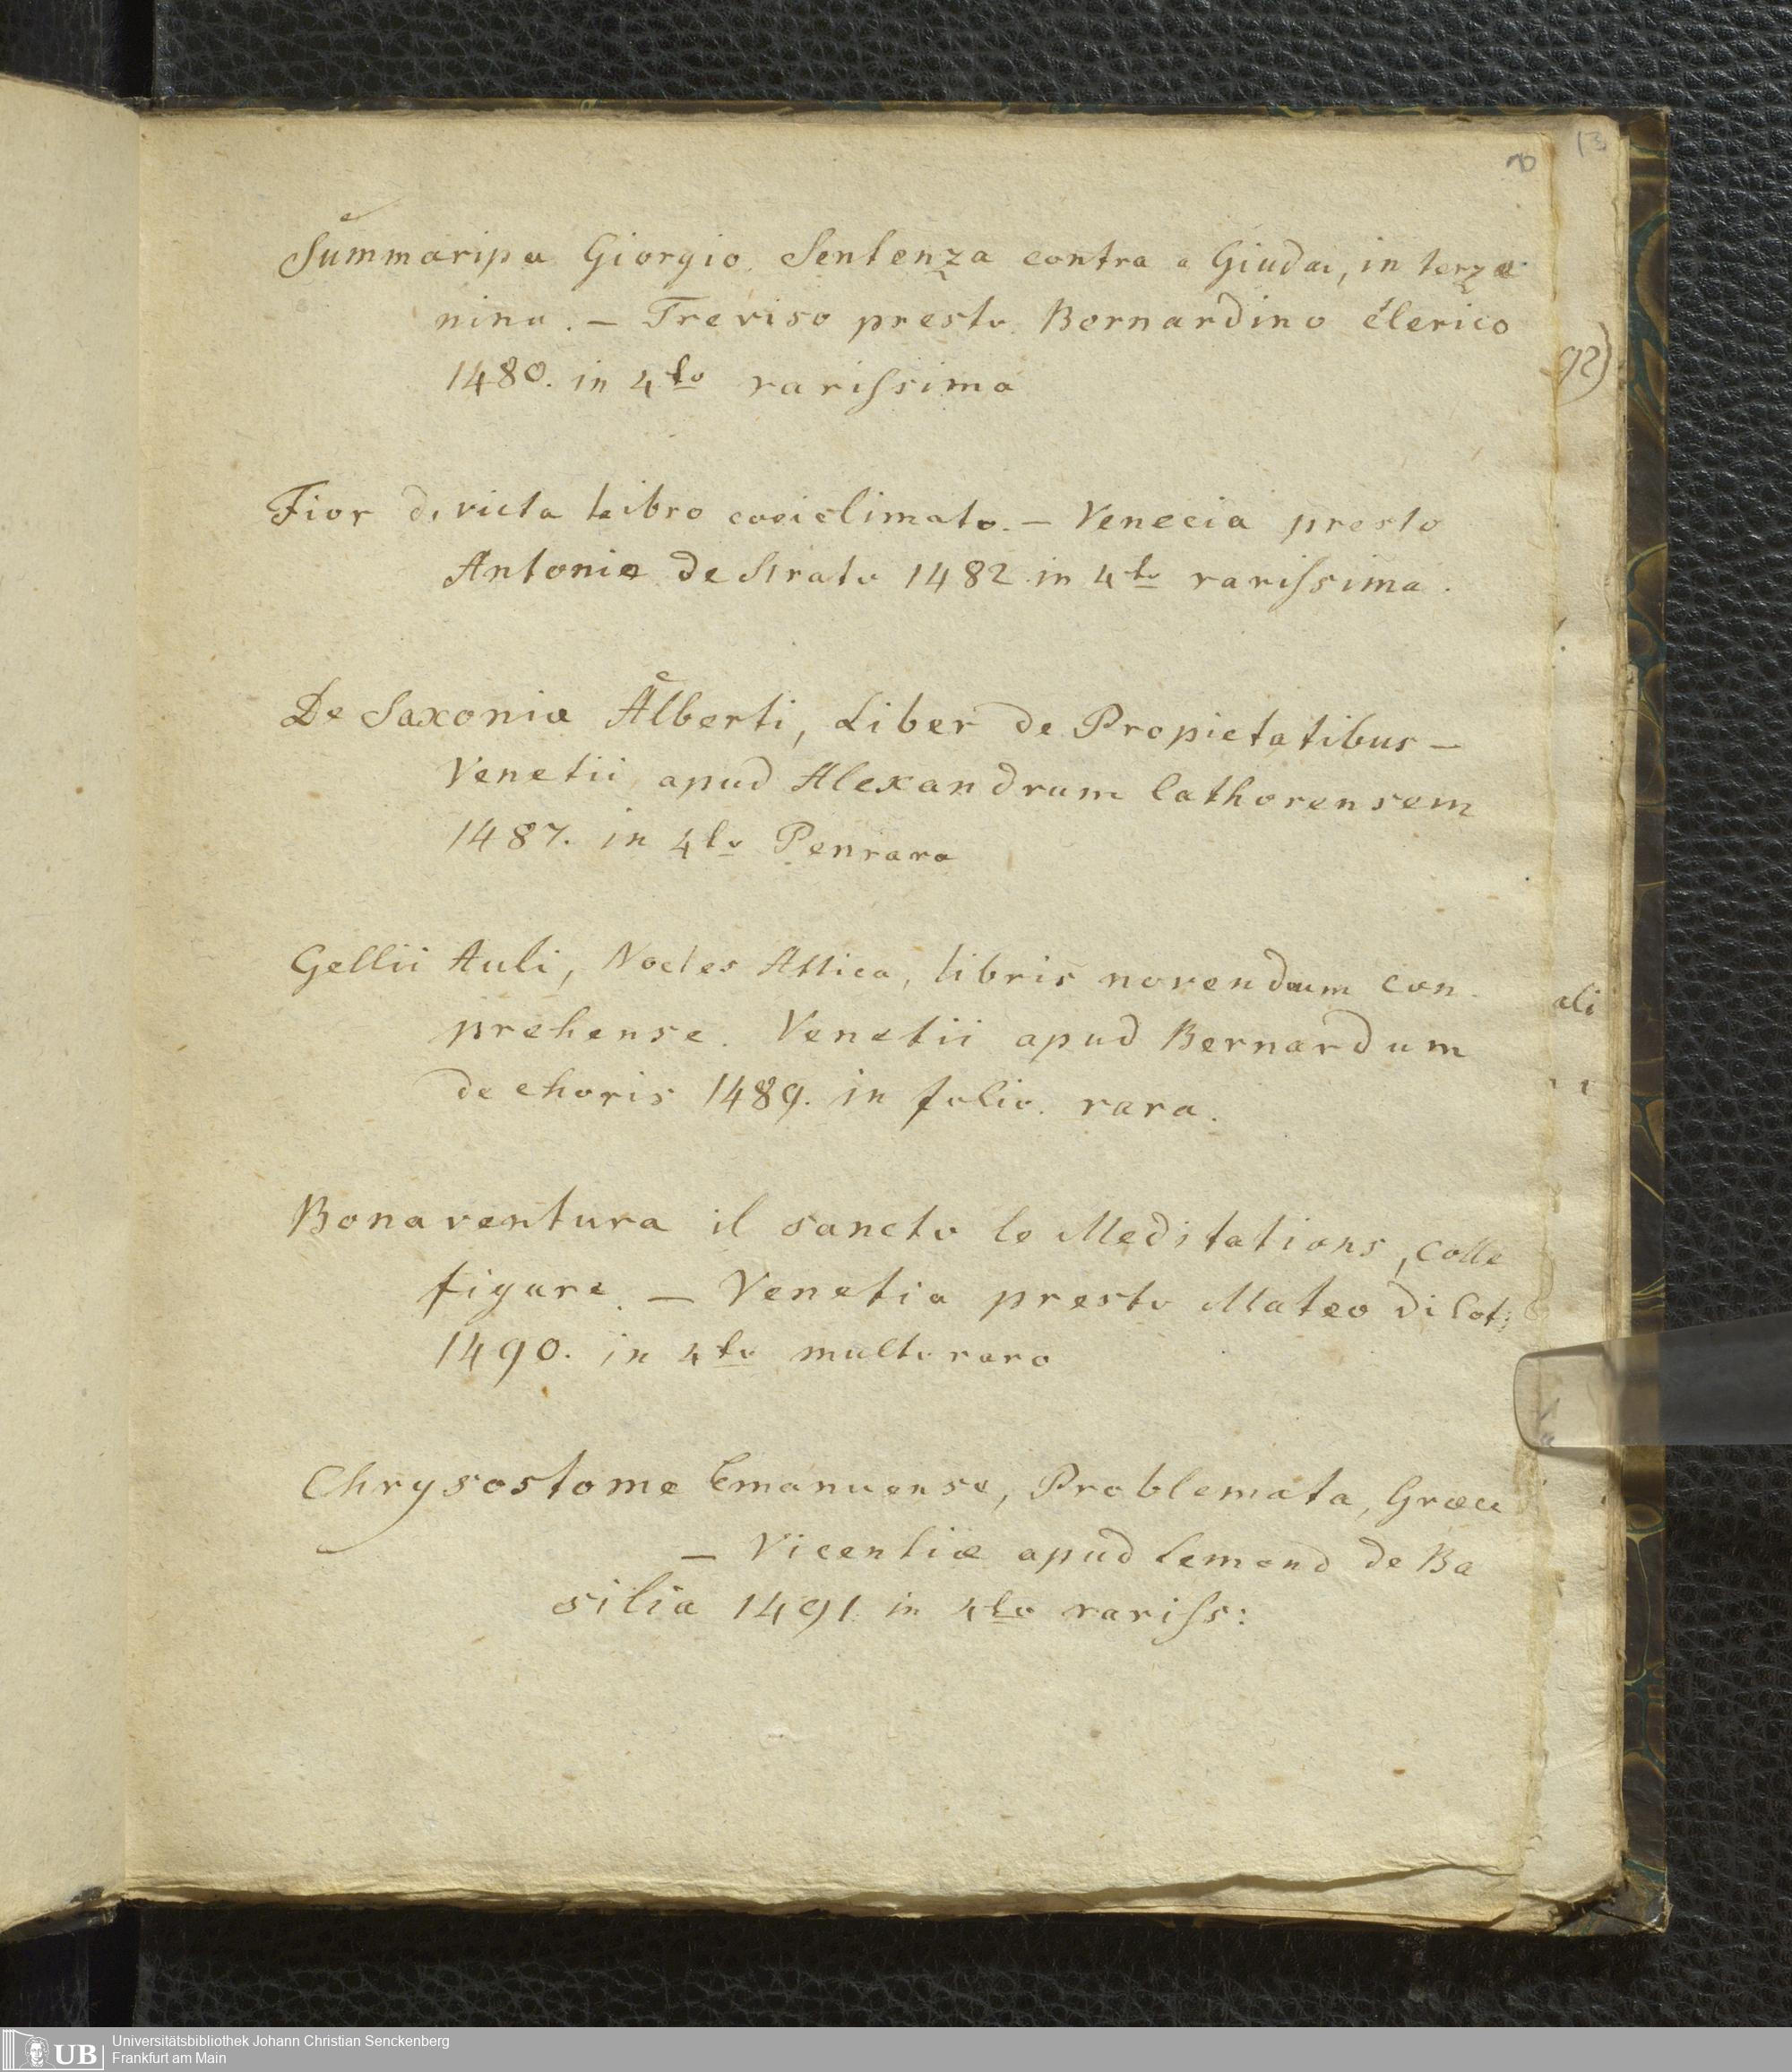 13
Summaripa Giorgio. Sentenza contra a Giudai, in terza
nina. — Treviso presto Bernardino Clerico
1480. in 4to rarissima
92)
Fior di victa Libro cosiclimato. — Venecia presto
Antonia de Strato 1482 in 4to rarissima.
De Saxonia Alberti, Liber de Propietatibus —
Venetii apud Alexandrum Cathorensem
1487. in 4to Penrara
Gellii Auli, Noctes Attica, libris novendum con-
ali
prehense. Venetii apud Bernardum
de choris 1489. in folio. rara.
Bonaventura il sancto le Meditations, colle
figure. — Venetia presto Mateo di Cot:
1490. in 4to multo raro
Chrysostome Emanuense, Problemata, Græce
— Vicentiæ apud Lemond de Ba
silia 1491. in 4to rariss:
UB
Universitätsbibliothek Johann Christian Senckenberg
Frankfurt am Main